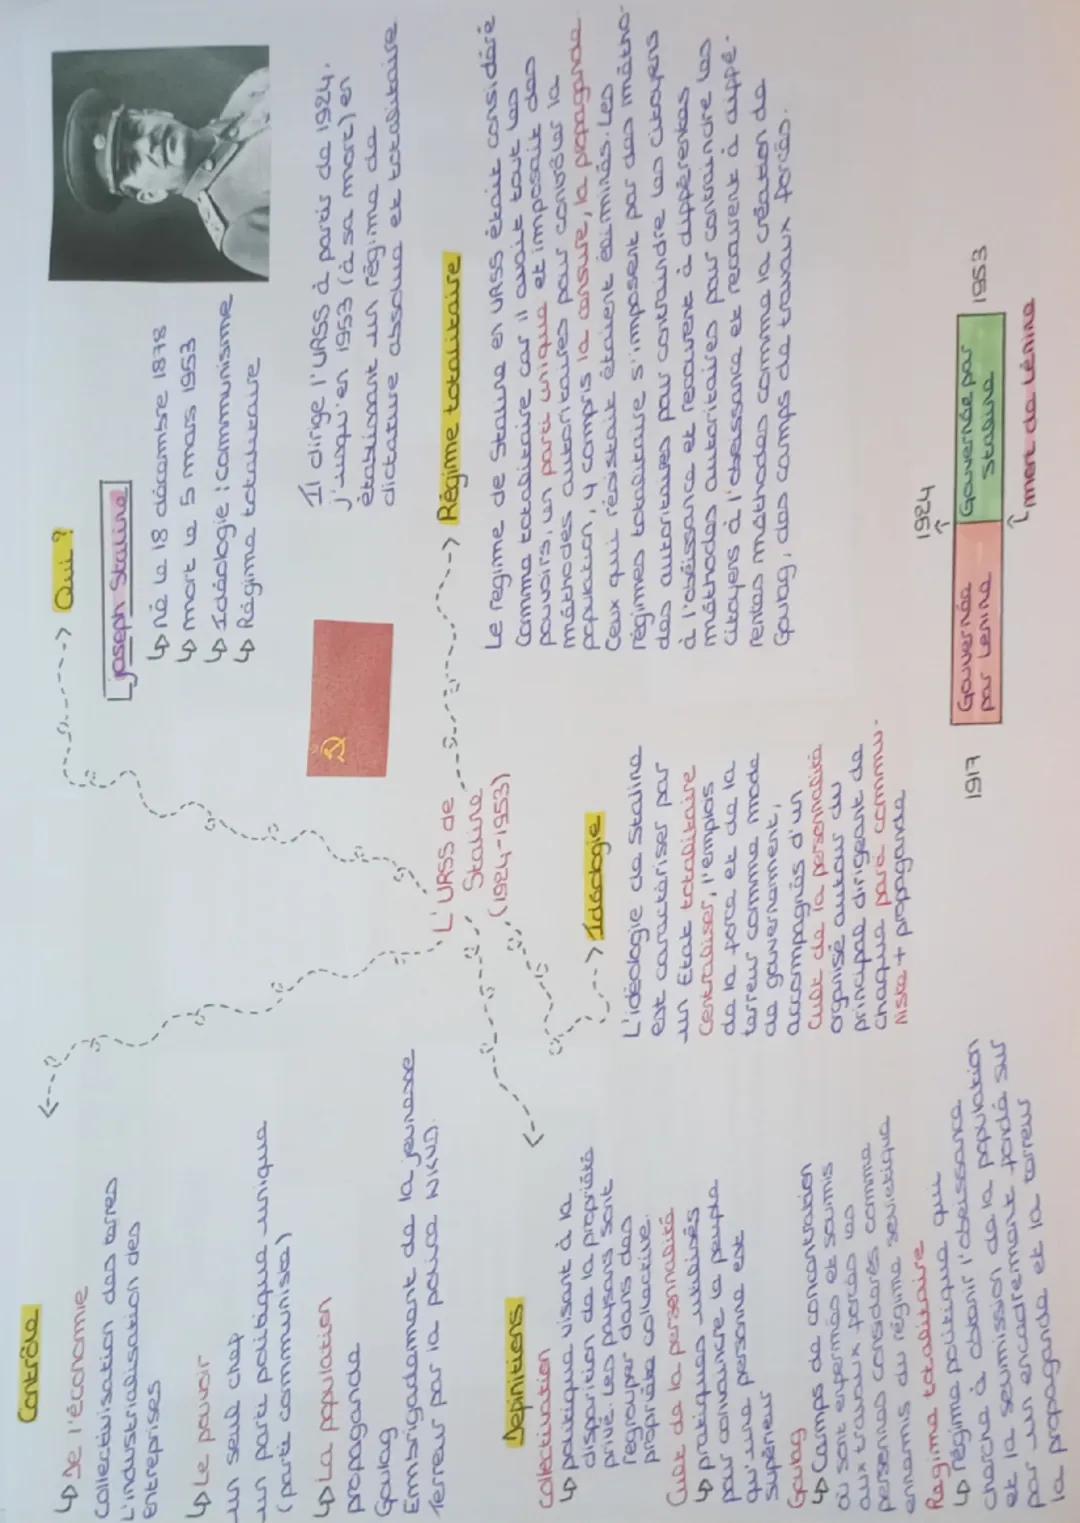 Contrôle
↳ De l'économie
Collectivisation des terres
L'industrialisation des
Entreprises
↳ Le pouvoir
un seul chef
un parti politique unique
(parti communiste)
↳ La population
propagande
Goulag
Embrigadement de la jeunesse
Terreur par la police NKVD.
Qui ?
Joseph Staline
↳ né le 18 décembre 1878
↳ mort le 5 mars 1953
↳ Idéologie : communisme
↳ Régime totalitaire
Il dirige l'URSS à partir de 1924,
jusqu'en 1953 (à sa mort) en
établissant un régime de
dictature absolue et totalitaire
L'URSS de
Staline
(1924-1953)
Régime totalitaire
Le regime de Staline en URSS était considéré
comme totalitaire car il avait tout les
pouvoirs, un parti unique et imposait des
méthodes autoritaires pour contrôler la
population, y compris la censure, la propagande.
Ceux qui résistait étaient éliminés. Les
régimes totalitaire s'imposent par des métho-
des autoritaires pour contraindre les citoyens
à l'obéissance et recourent à différentes
méthodes autoritaires pour contraindre les
citoyens à l'obeissance et recourent à diffé-
rentes méthodes comme la création de
Goulag, des camps de travaux forcés.
Définitions
Collectivisation
↳ politique visant à la
disparition de la propriété
privé. Les paysans sont
regrouper dans des
propriété collective.
Cult de la personnalité
↳ pratiques utilisés
pour convaincre le peuple
qu'une personne est
supérieur
Goulag
↳ Camps de concentration
où sont enfermés et soumis
aux travaux forcés les
personnes considérés comme
ennemis du régime soviétique
Regime totalitaire
↳ régime politique qui
cherche à obtenir l'obeissance
et la soumission de la population
par un encadrement fondé sur
la propagande et la terreur
Idéologie
L'idéologie de Staline
est caractériser par
un Etat totalitaire
Centraliser, l'emplois
de la force et de la
terreur comme mode
de gouvernement,
accompagnés d'un
cult de la personnalité
organisé autour du
principal dirigeant de
chaque parti commu-
niste + propaganda
1917
Gouvernée
par Lenine
1924
Gouvernée par
Staline
1953
mort de Lénine